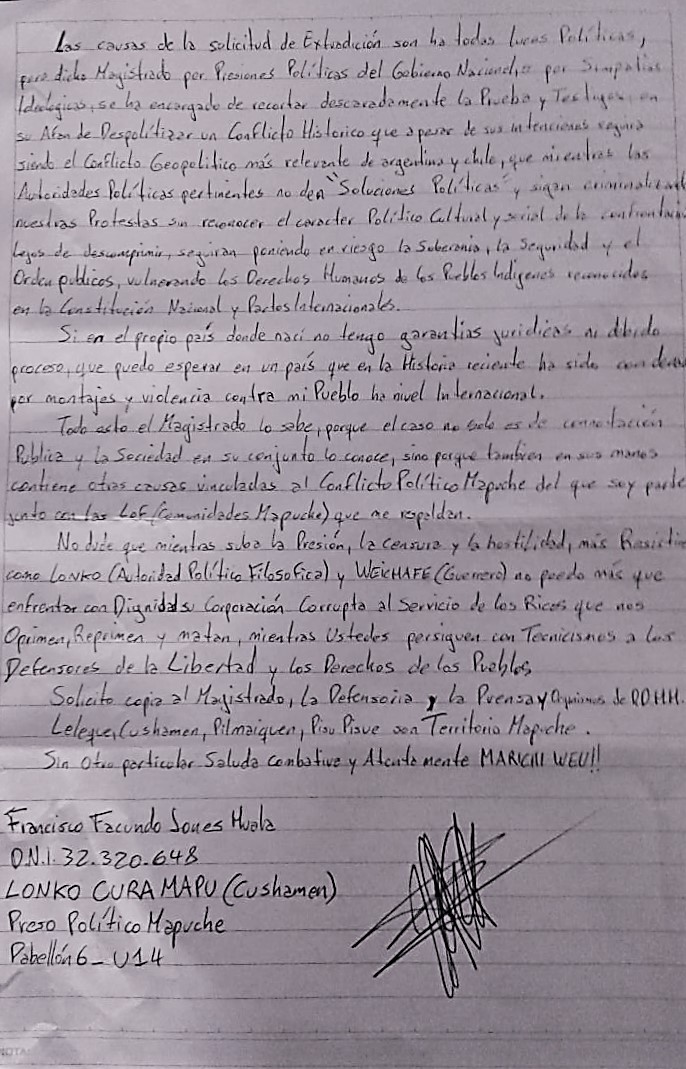 Las causas de la solicitud de Extradición son ha todas luces Políticas,
pero dicho Magistrado por Presiones Políticas del Gobierno Nacional, o por Simpatías
Ideologicas, se ha encargado de recortar descaradamente la Prueba y Testigos, en
su Afan de Despolitizar un Conflicto Historico que apesar de sus intenciones seguirá
siendo el Conflicto Geopolitico más relevante de argentina y chile, que mientras las
Autoridades Políticas pertinentes no den "Soluciones Políticas" y sigan criminalizando
nuestras Protestas sin reconocer el caracter Politico Cultural y social de la confrontación
Lejos de descomprimir, seguiran poniendo en riesgo la Soberania, la Seguridad y el
Orden publicos, vulnerando los Derechos Humanos de los Pueblos Indigenas reconocidos
en la Constitución Nacional y Pactos Internacionales.
Si en el propio país donde naci no tengo garantias juridicas ni debido
proceso, que puedo esperar en un país que en la Historia reciente ha sido condenado
por montajes y violencia contra mi Pueblo ha nivel Internacional.
Todo esto el Magistrado lo sabe, porque el caso no solo es de connotación
Publica y la Sociedad en su conjunto lo conoce, sino porque tambien en sus manos
contiene otras causas vinculadas al Conflicto Político Mapuche del que soy parte
junto con las Lof (Comunidades Mapuche) que me respaldan.
No dude que mientras suba la Presión, la censura y la hostilidad, más Resistire
como LONKO (Autoridad Politico Filosofica) y WEICHAFE (Guerrero) no puedo más que
enfrentar con Dignidad su Corporación Corrupta al Servicio de los Ricos que nos
Oprimen, Reprimen y matan, mientras Ustedes persiguen con Tecnicismos a los
Defensores de la Libertad y los Derechos de los Pueblos.
Solicito copia al Magistrado, la Defensoria y la Prensa y Organismos de DDHH.
Leleque, Cushamen, Pilmaiquen, Pisu Pisue son Territorio Mapuche.
Sin otro particular Saluda combativa y Atentamente MARICHI WEU!!
Francisco Facundo Jones Huala
D.N.I. 32.320.648
LONKO CURA MAPU (Cushamen)
Preso Político Mapuche
Pabellón 6 - U14
NOTA